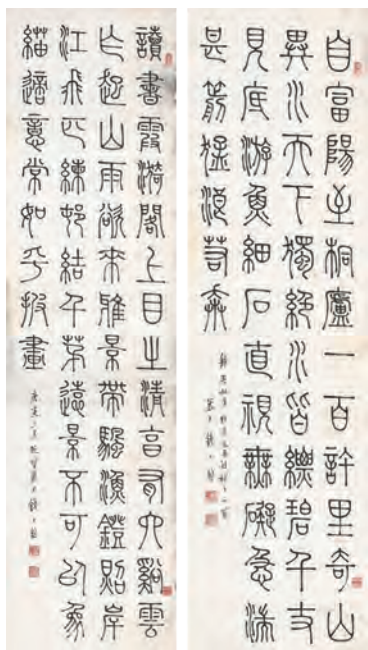 自富陽至桐廬一百許里奇山
異水天下獨絕水皆縹碧千丈
見底游魚細石直視無礙急湍
甚箭猛浪若奔
讀書霞漪閣上目之清享有六谿雲
乍起山雨欲來雅景帶颿漁鐙照岸
江飛匹練邨結千茅遠景不可以象
描適意常如乎披畫